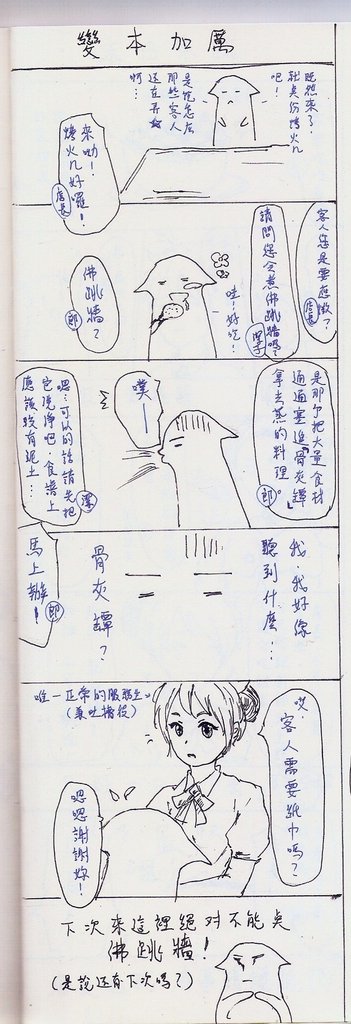 變本加厲
既然來了，
就點份烤火几
吧！
是說怎麼
那些客人
還在弄
啊…
來呦！
烤火几好囉！
店長
客人您是要應徵？
店長
請問您會煮佛跳牆嗎？
潔子
哇！好吃！
佛跳牆？
郎
是那個把大量食材
通通塞進"骨灰罈"
拿去蒸的料理。
郎
噗——
嗯…可以的話請先把
它洗淨吧，食譜上
應該沒有泥土…
潔
我，我好像
聽到什麼…
骨灰罈？
馬上辦！
郎
唯一正常的服務生
(兼吐槽役)
哎，
客人需要紙巾嗎？
嗯嗯謝謝妳！
下次來這裡絕对不能点
佛跳牆！
(是說还有下次嗎？)